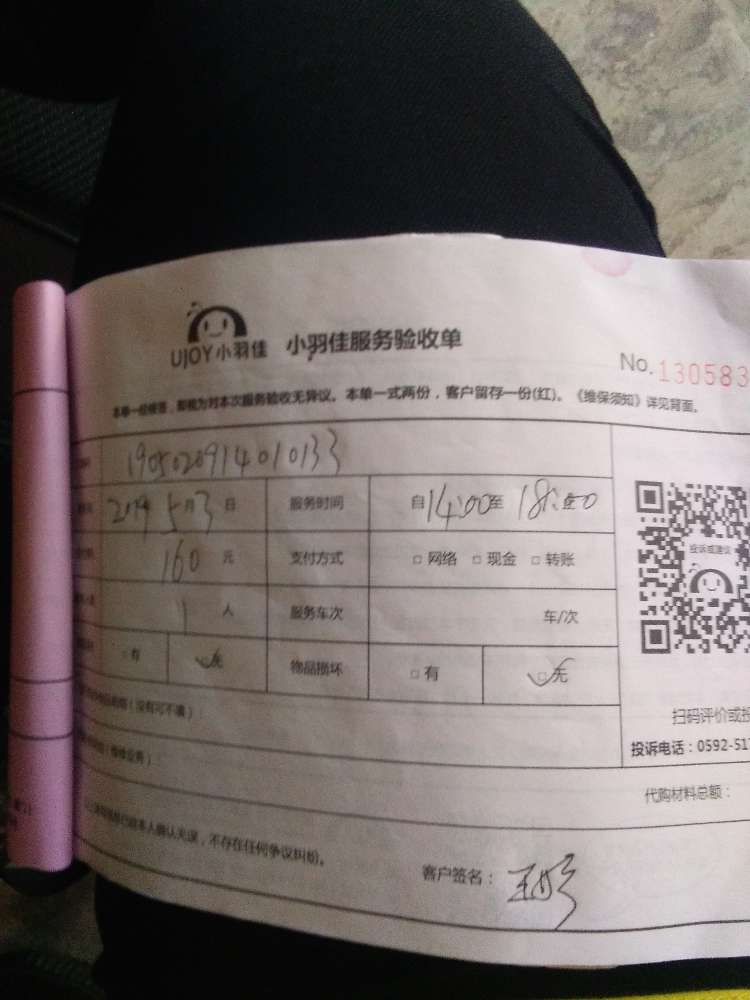 UJOY小羽佳 小羽佳服务验收单
No.130583
本单一经接签，即视为对本次服务验收无异议。本单一式两份，客户留存一份(红)。《维保须知》详见背面。
1905020914010133
2019 5月3日 服务时间 自14:00至18:00
160元 支付方式 □网络 □现金 □转账
投诉或建议
1人 服务车次 车/次
□有 □无 物品损坏 □有 □无
(没有可不填)：
扫码评价或投
投诉电话：0592-517
代购材料总额：
本人确认无误，不存在任何争议纠纷。
客户签名：